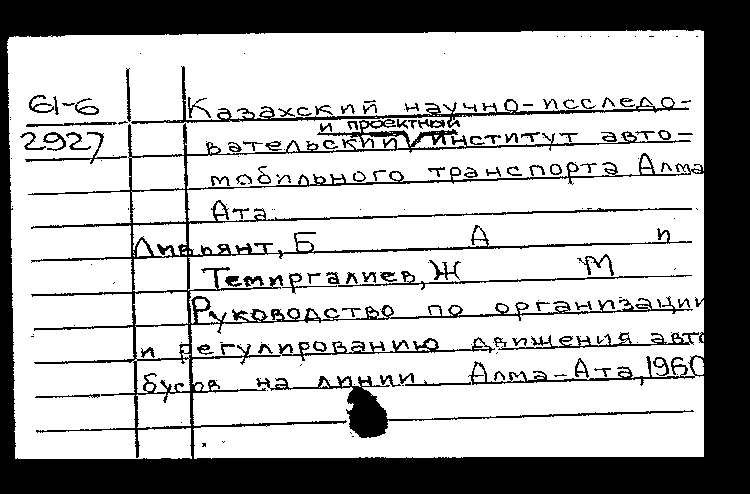 61-6 Казахский научно-исследо-
и проектный
2927 вательский институт авто-
мобильного транспорта. Алма
Ата.
Ливьянт, Б А и
Темиргалиев, Ж М
Руководство по организации
и регулированию движения авто
бусов на линии. Алма-Ата, 1960